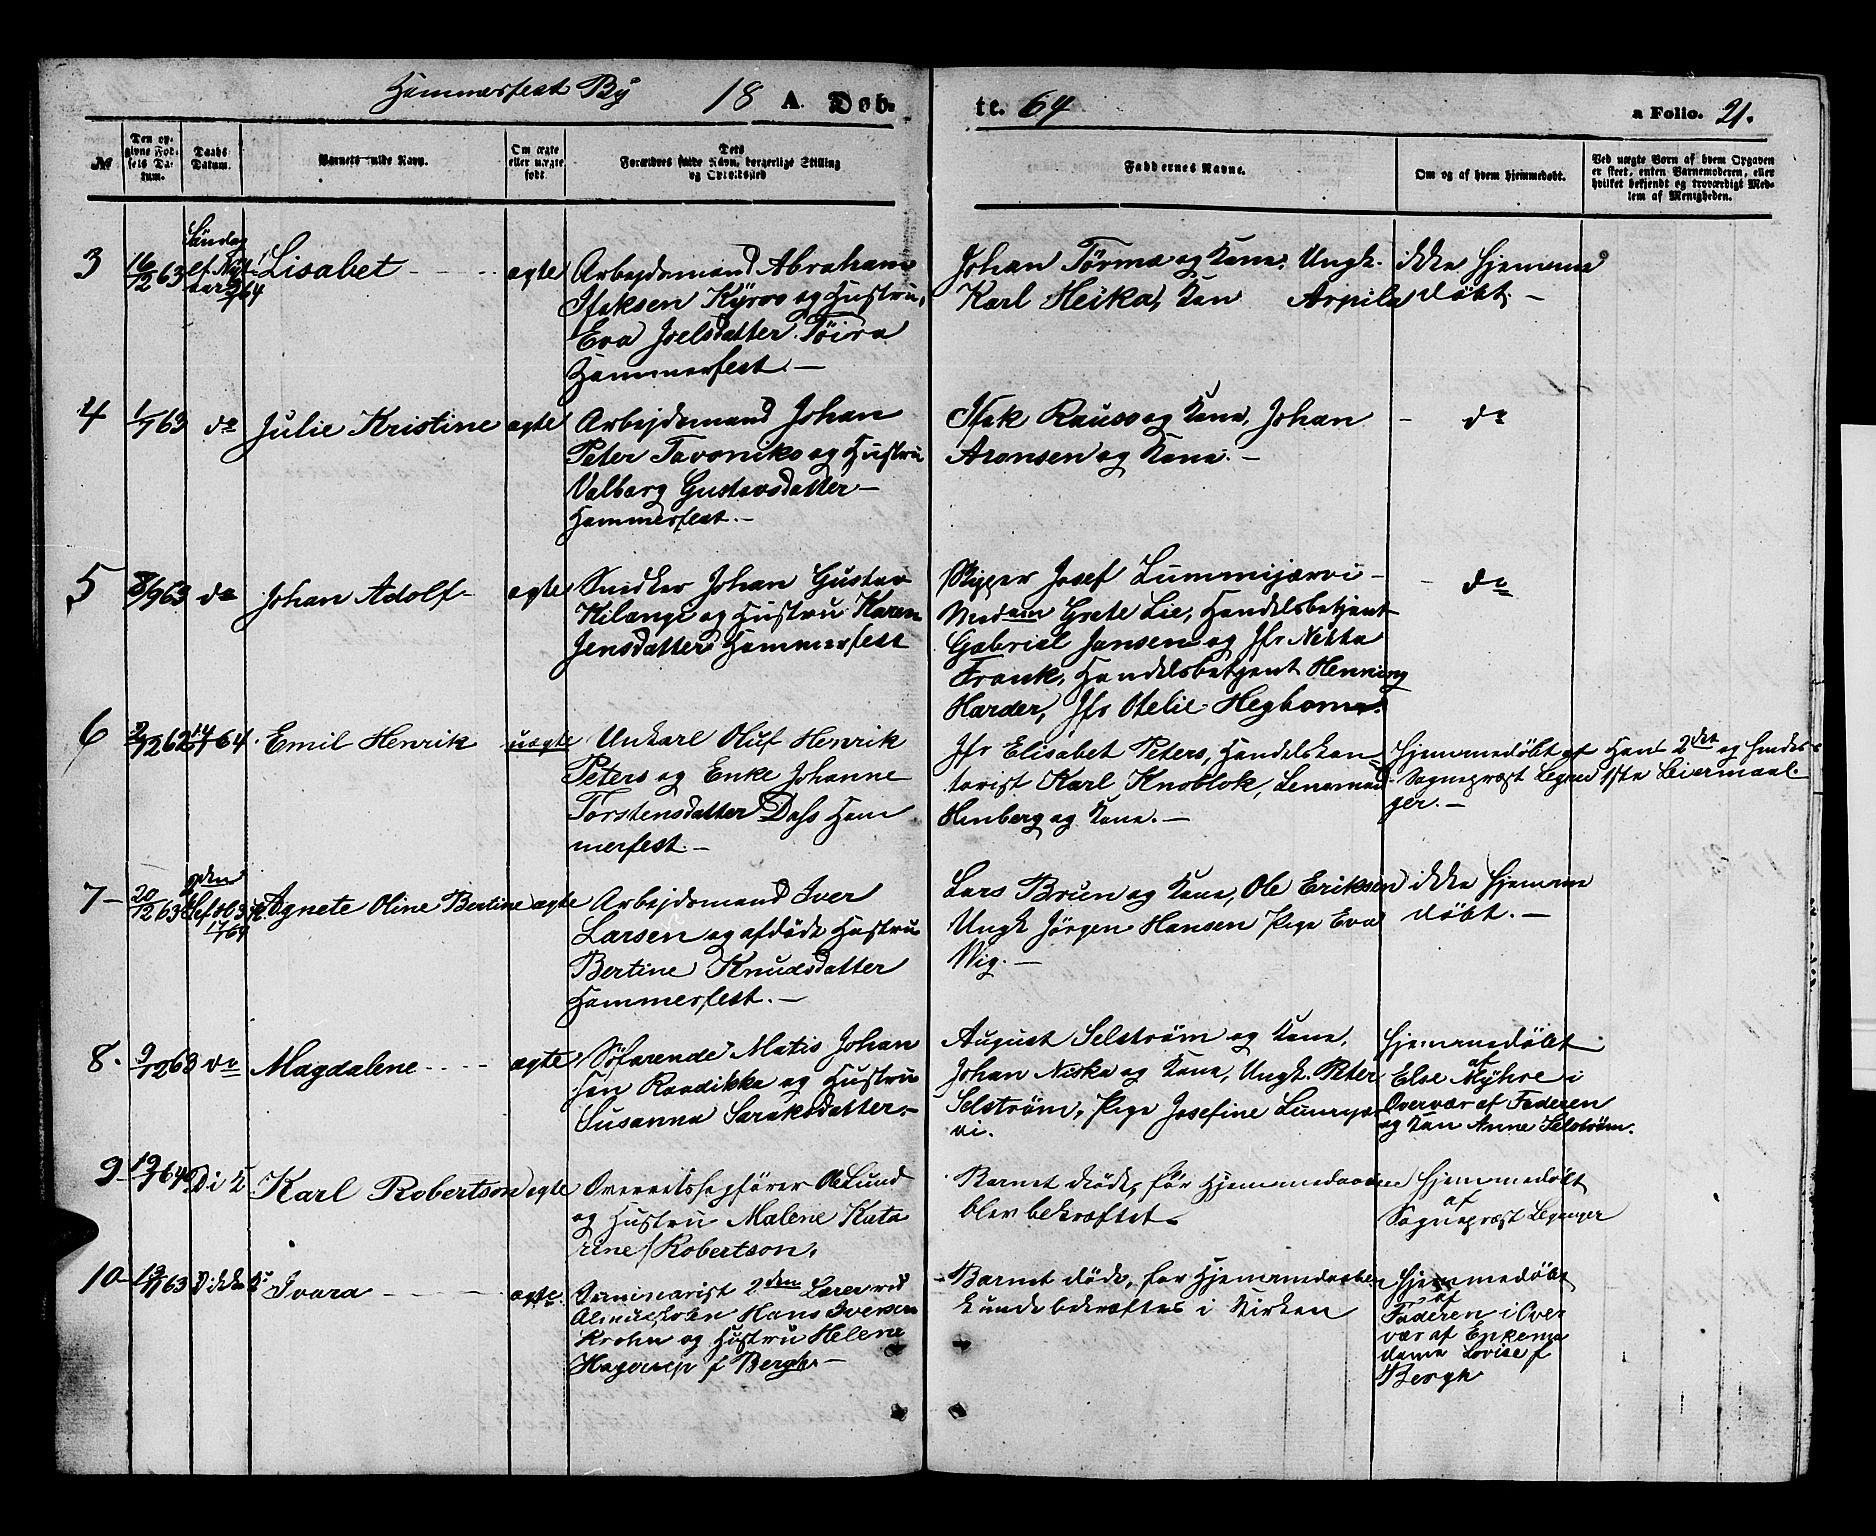 Hammerfest By 18 A. Døb. te. 64 a Folio. 21.
№ Den opgivne Fødsels Datum. Daabs Datum. Barnets fulde Navn. Om ægte eller uægte født. Dets Forældres fulde Navn, borgerlige Stilling og Opholdssted Faddernes Navne. Om og af hvem hjemmedøbt. Ved uægte Børn af hvem Opgaven er skeet, enten Barnemoderen, eller hvilket bekjendt og troværdigt Medlem af Menigheden.
3 16/12 63 Søndag ef. Nyt- aar 3/1 64 Lisabet ægte Arbejdsmand Abraham
Isaksen Kyrøo og Hustru,
Eva Joelsdatter Töira
Hammerfest. —
Johan Törma og Kone, Ungk.
Karl Heika, Kon Arpila
ikke hjemme
døbt. —
4 1/1 63 do Julie Kristine ægte Arbejdsmand Johan
Peter Tavoniko og Hustru
Valborg Gustavsdatter —
Hammerfest. —
Isak Rauso og Kone, Johan
Aronsen og Kone. —
- do
5 8/9 63 do Johan Adolf ægte Snedker Johan Gustav
Kilangi og Hustru Karen
Jensdatter Hammerfest
Skipper Josef Lummijærvi —
Madam Grete Lie, Handelsbetjent
Gabriel Jansen og Jfr Netta
Frank, Handelsbetjent Henning
Harder, Jfr Otelie Hegbom.
- do
6 2/12 62 14/1 64 Emil Henrik uægte Unkarl Oluf Henrik
Peters og Enke Johanne
Torstensdatter Dass Ham
merfest. —
Jfr Elisabet Peters, Handelskon
torist Karl Knoblok, Lensmand
Henberg og Kone. —
Hjemmedøbt af
Sognepræst Legnan
ger. —
Hans 2det og hendes
1ste Leiermaal.
7 20/12 63 2den S. ef. H 3 K. 17/1 64 Agnete Oline Bertine ægte Arbejdsmand Iver
Larsen og afdøde Hustru
Bertine Knudsdatter
Hammerfest. —
Lars Brun og Kone, Ole Eriksen
Ungk Jörgen Hansen Pige Eva
Wig. —
ikke hjemme
døbt. —
8. 9/12 63 do Magdalene ægte Søfarende Matis Johan
sen Raadikka og Hustru
Susanna Saraksdatter. —
August Selström og Kone,
Johan Niska og Kone, Ungk. Peter
Selström, Pige Josefine Lumijær
vi.
Hjemmedøbt
af
Else Myhre i
Overvær af Faderen
og Kon Anne Selström.
9 19/1 64 Karl Robertson ægte Overretssagfører Ole Lund
og Hustru Malene Kata
rine f Robertson.
Barnet døde, før Hjemmedaaben
blev bekræftet.
Hjemmedøbt
af
Sognepræst Leganger
10 13/11 63 Ivara ægte Seminarist 2den Lærer ved
Almueskolen Hans Iversen
Krohn og Hustru Helene
Hagerup f Bergh. —
- Barnet døde, før Hjemmedaaben
kunde bekræftes i Kirken
Hjemmedøbt
af
Faderen i Over
vær af Enkema
dame Lovise f
Bergh